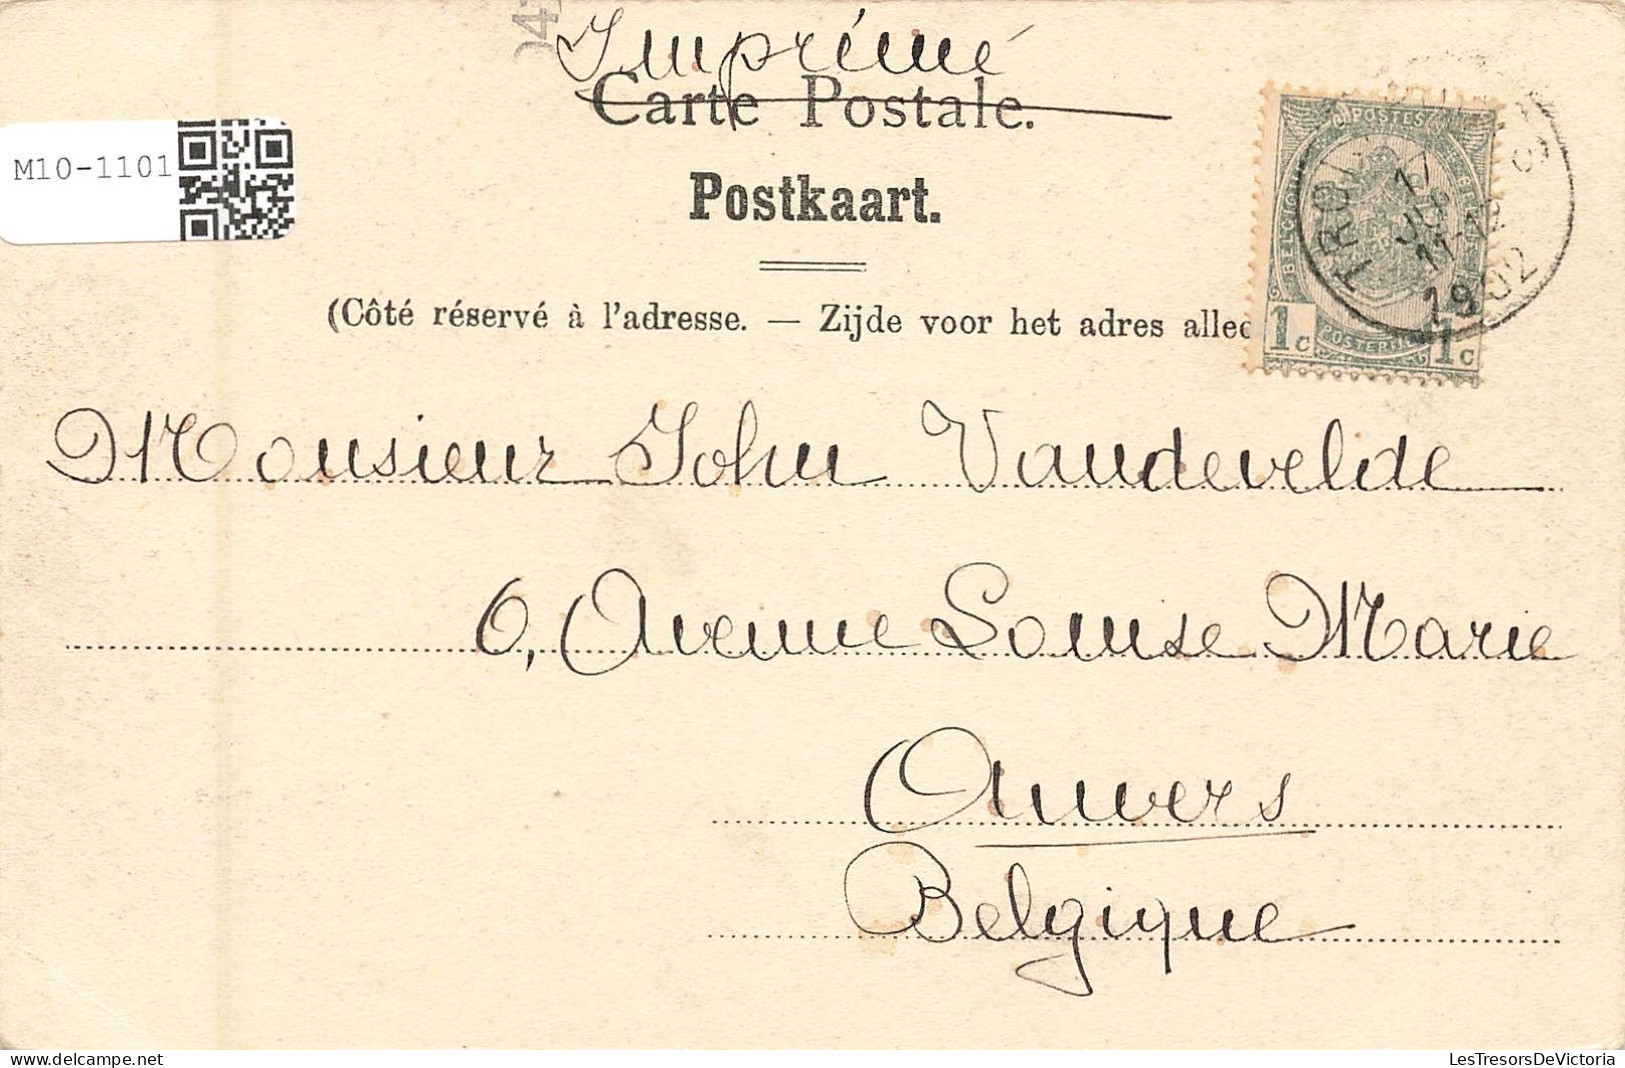 Imprimé
Carte Postale.
Postkaart.
M10-1101
(Côté réservé à l'adresse. — Zijde voor het adres alleen
POSTES
1c 1c
17 JUIL
11-12
1902
Monsieur John Vandevelde
6, Avenue Louise Marie
Anvers
Belgique
LesTresorsDeVictoria
delcampe.net